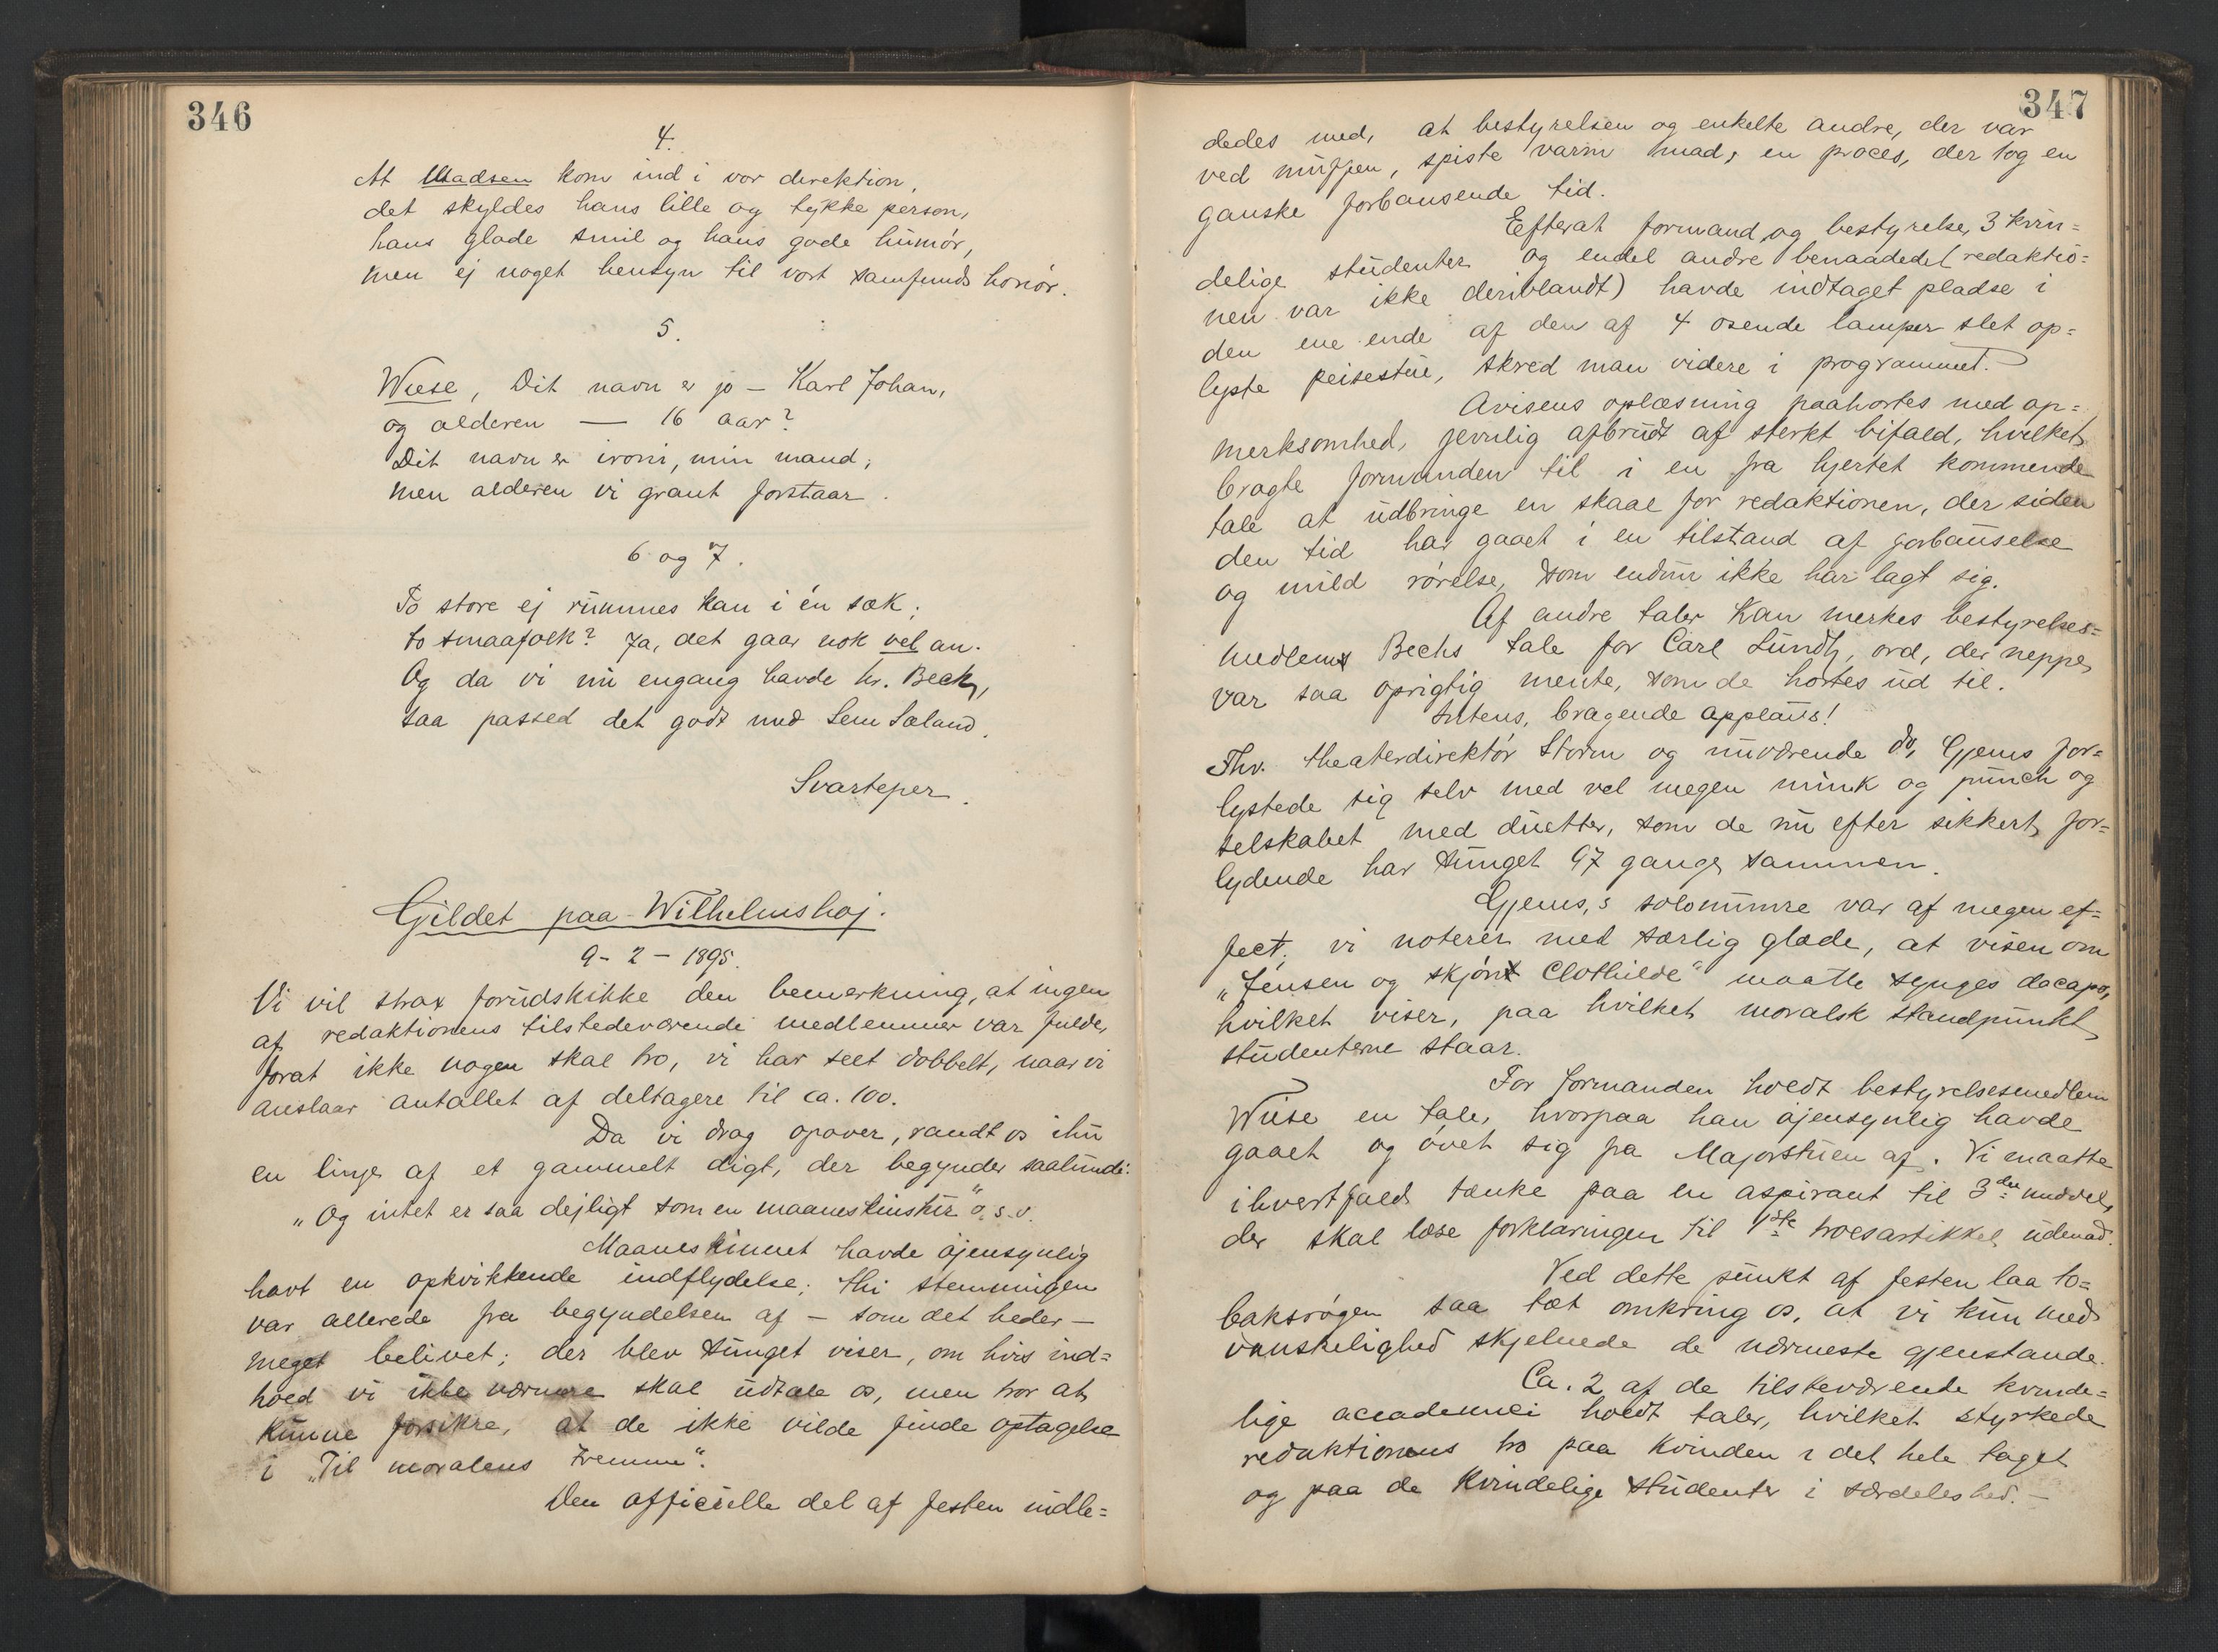 346
4.
At Madsen kom ind i vor direktion,
det skyldes hans lille og tykke person,
hans glade smil og hans gode humør,
men ej noget hensyn til vort samfunds honør.
5.
Wiese, Dit navn er jo – Karl Johan,
og alderen — 16 aar?
Dit navn er ironi, min mand,
men alderen vi grant forstaar.
6 og 7.
To store ej rummes kan i én sæk;
to smaafolk? Ja, det gaar nok vel an.
Og da vi nu engang havde hr. Bech,
saa passed det godt med Sem Sæland.
Svarteper.
Gildet paa Wilhelmshøj.
9 - 2 - 1895.
Vi vil strax forudskikke den bemerkning, at ingen
af redaktionens tilstedeværende medlemmer var fulde,
forat ikke nogen skal tro, vi har seet dobbelt, naar vi
anslaar antallet af deltagere til ca. 100.
Da vi drog opover, randt os ihu
en linje af et gammelt digt, der begynder saalunde:
„Og intet er saa dejligt som en maaneskinstur" o. s. v.
Maaneskinnet havde øjensynlig
havt en opkvikkende indflydelse; thi stemningen
var allerede fra begyndelsen af – som det heder –
meget belivet; der blev sunget viser, om hvis ind=
hold vi ikke nærmere skal udtale os, men tror at
kunne forsikre, at de ikke vilde finde optagelse
i „Til moralens fremme".
Den officielle del af festen indle=
347
dedes med, at bestyrelsen og enkelte andre, der var
ved muffen, spiste varm mad, en proces, der tog en
ganske forbausende tid.
Efterat formand og bestyrelse, 3 kvin=
delige studenter og endel andre benaadede (redaktio=
nen var ikke deriblandt) havde indtaget pladse i
den ene ende af den af 4 osende lamper slet op=
lyste peisestue, skred man videre i programmet.
Avisens oplæsning paahørtes med op=
merksomhed, jevnlig afbrudt af sterkt bifald, hvilket
bragte formanden til i en fra hjertet kommende
tale at udbringe en skaal for redaktionen, der siden
den tid har gaaet i en tilstand af forbauselse
og mild rørelse, som endnu ikke har lagt sig.
Af andre taler kan merkes bestyrelses=
medlem Bechs tale for Carl Lundh, ord, der neppe
var saa oprigtig mente, som de hørtes ud til.
Intens, bragende applaus!
Fhv. theaterdirektør Storm og nuværende do, Gjems for=
lystede sig selv med vel megen munk og punch og
selskabet med duetter, som de nu efter sikkert for=
lydende har sunget 97 gange sammen.
Gjems,s solonumre var af megen ef=
fect; vi noterer med særlig glæde, at visen om
„Jensen og skjøn Clothilde" maatte synges dacapo,
hvilket viser, paa hvilket moralsk standpunkt
studenterne staar.
For formanden holdt bestyrelsesmedlem
Wiese en tale, hvorpaa han øjensynlig havde
gaaet og øvet sig pa Majorstuen af. Vi maatte
ihvertfald tænke paa en aspirant til 3die middel,
der skal læse forklaringen til 1ste troesartikkel udenad.
Ved dette punkt af festen laa to=
baksrøgen saa tæt omkring os, at vi kun med
vanskelighed skjelnede de nærmeste gjenstande.
Ca. 2 af de tilsteværende kvinde=
lige accademici holdt taler, hvilket styrkede
redaktionens tro paa kvinden i det hele taget
og paa de kvindelige studenter i særdeleshed. –